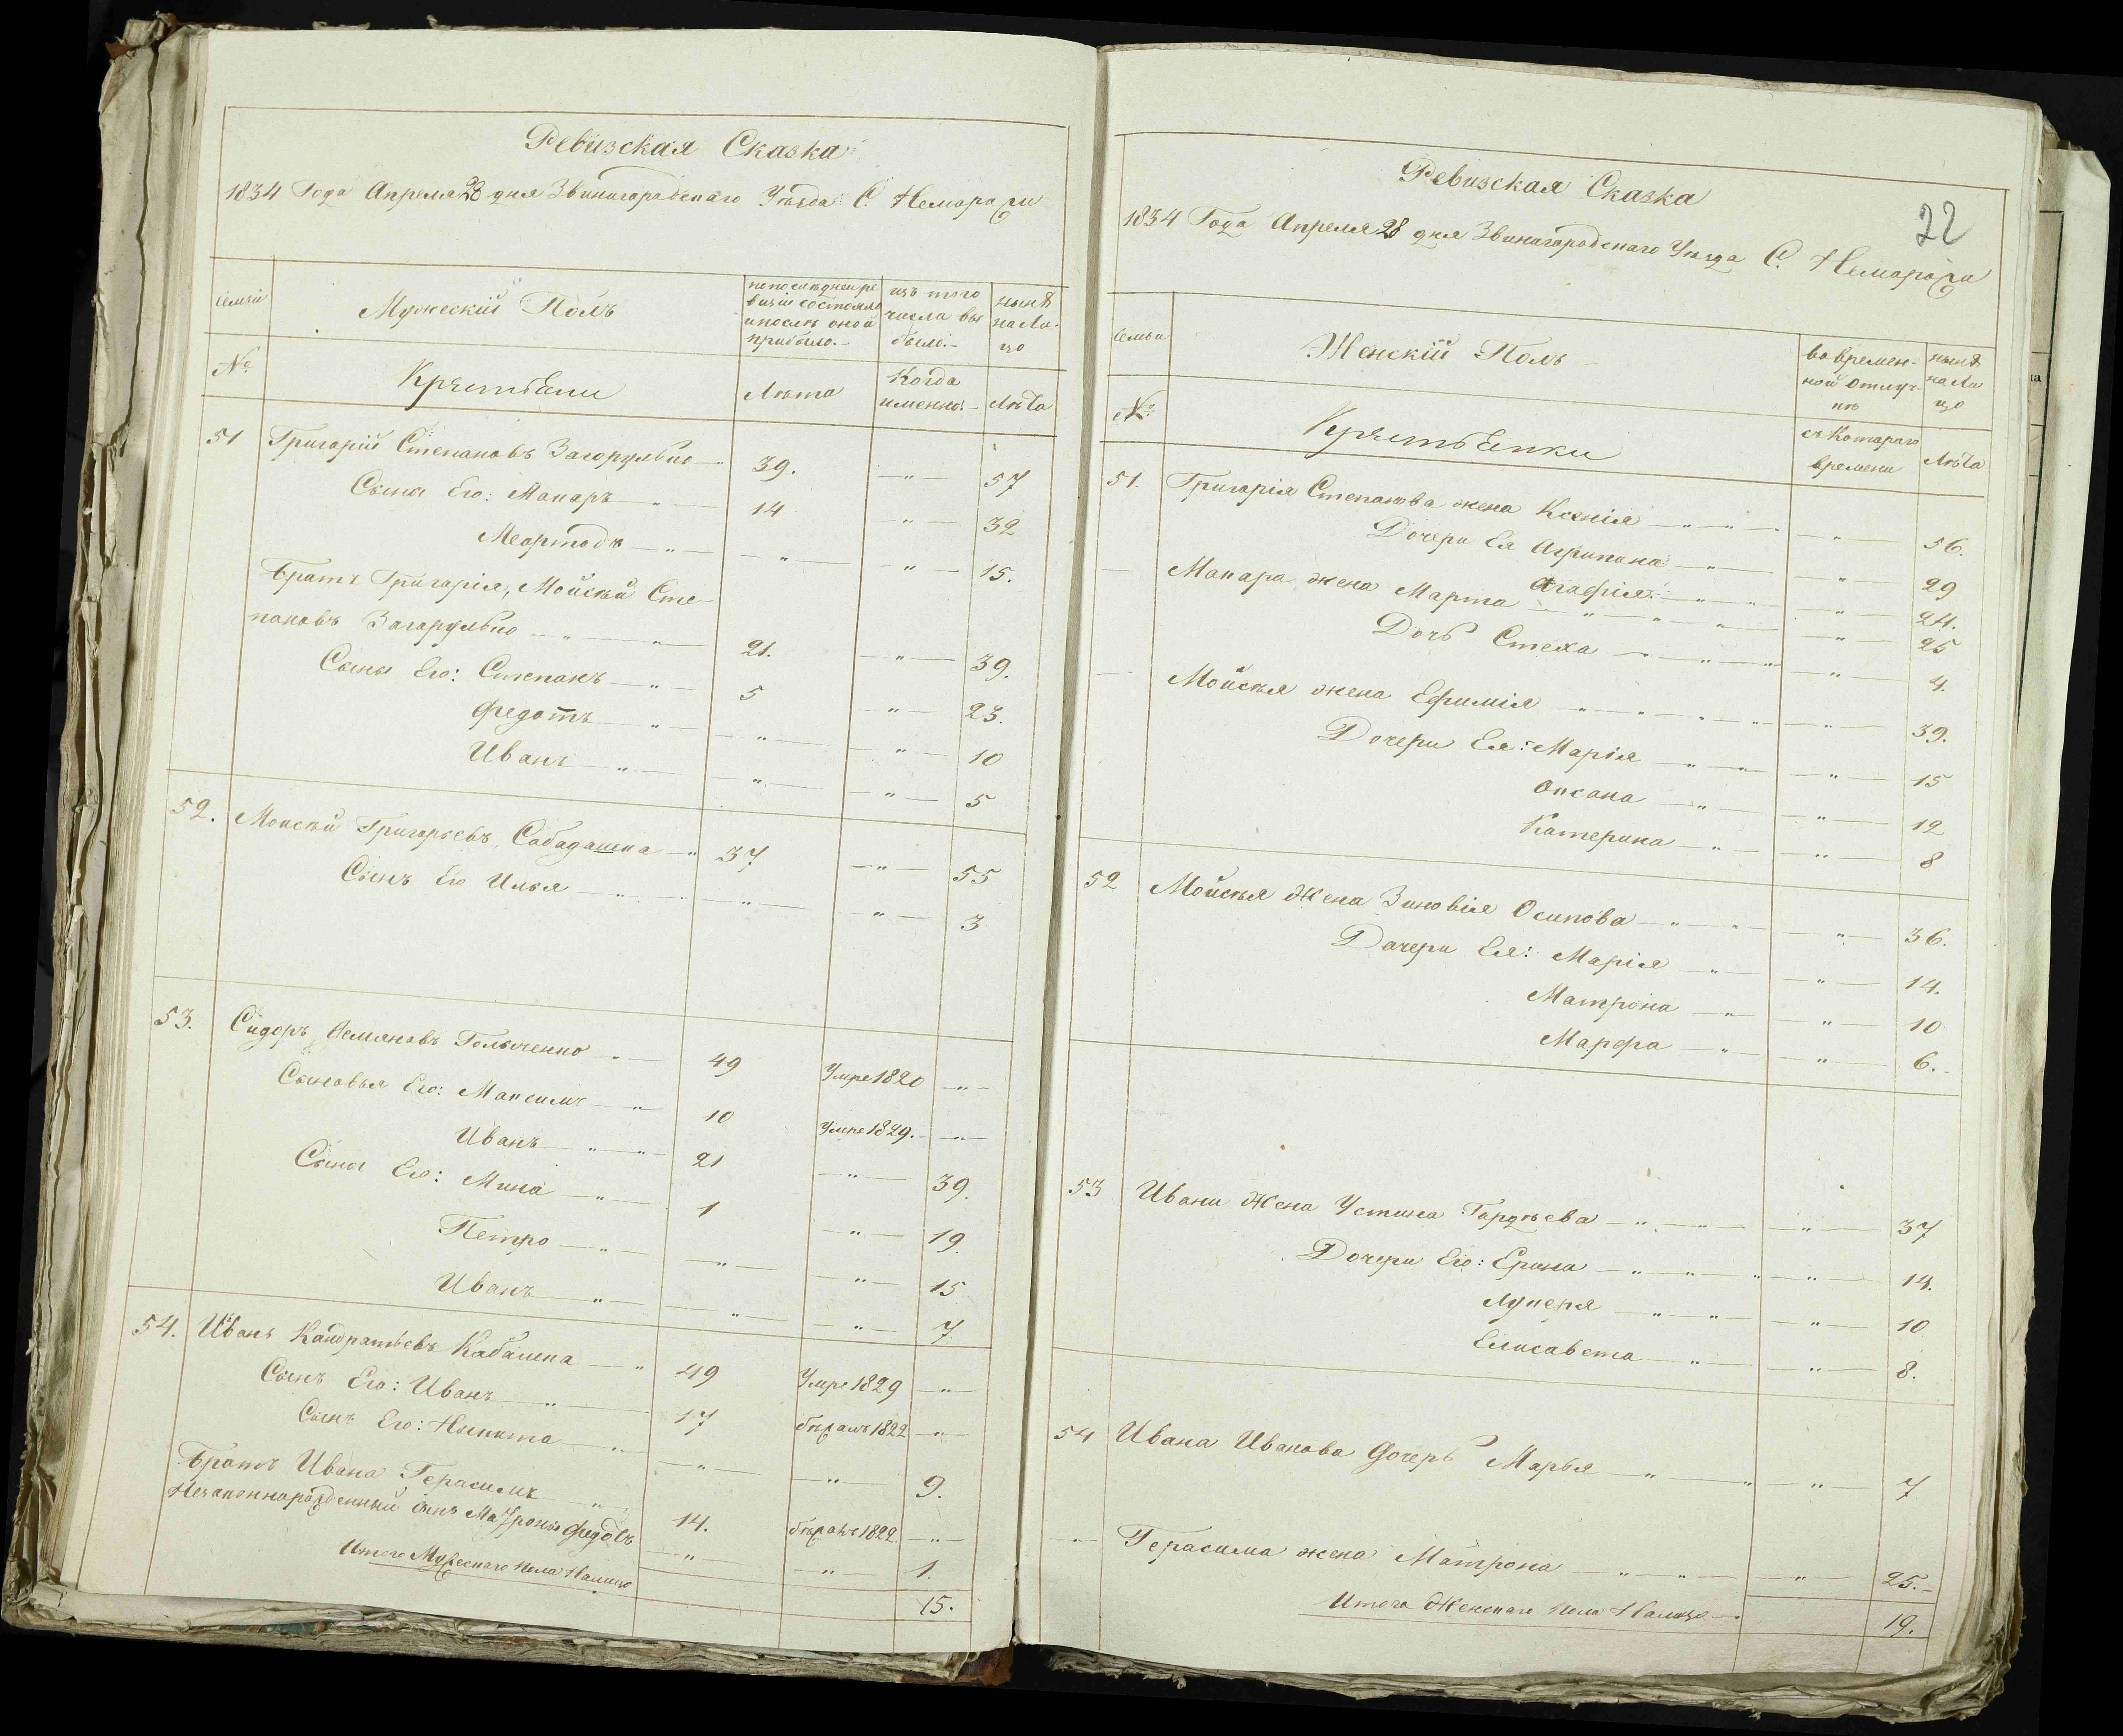 Ревизская Сказка
1834 Года Апреля 28 дня Звинигородскаго Уезда С. Неморожи
Семьи
Мужескій Полъ
по последней ревизіи состояло и после оной прибыло.
изъ того числа выбыло.
ныне на лицо
№
Крестьяни
Лета
Когда именно
Лета
51 Григорій Степановъ Загорулько 39. " 57
Сыны Его: Макаръ " 14 " 32
" " " 15.
Братъ Григорія, Мойсей Сте-
пановъ Загарулько " " 21. " 39.
Сыны Его: Степанъ " 5 " 23.
Федотъ " " " 10
Иванъ " " " 5
52. Моисей Григорьевъ Сабадашка " 37 " 55
Сынъ Его Илья " " " 3
53. Сидоръ Демяновъ " 49 Умре 1820 "
Сыновья Его: Максимъ " 10 Умре 1829. "
Иванъ " " 21 " 39.
Сыны Его: Мина " 1 " 19.
Петро " " " 15
Иванъ " " " 7
54. Иванъ Кандратьевъ Кабашка " 49 Умре 1829 "
Сынъ Его: Иванъ " 17 бежалъ 1822 "
Сынъ Его: Никита " " " 9.
Братъ Ивана Герасимъ " 14. бежалъ 1822 "
Незаконнарожденный сынъ Матроны " " 1.
Итого Мужескаго пола Налицо 15.
Ревизская Сказка
22
1834 Года Апреля 28 дня Звинагородскаго Уезда С. Неморожи
Семьи
Женскій Полъ
во временной отлучке
ныне на лицо
№
Крестьянки
съ Котораго времени
Лета
51. Григорія Степанова жена Ксенія " " " 56.
Дочери Ея Агрипина " " 29
Агафія " " " 24.
Макара жена Марта " " " " 25
Дочь Стеха " " " 4.
Мойсея жена Ефимія " " " " " 39.
Дочери Ея: Марія " " " 15
Оксана " " 12
Катерина " " 8
52 Мойсея Жена Зиновія Осипова " " " 36.
Дочери Ея: Марія " " 14.
Матрона " " 10
Марфа " " 6.
53 Ивана Жена Устина Гордеева " " " 37
Дочери Его: Ерина " " " " 14.
Лукеря " " " 10
Елисавета " " 8.
54 Ивана Иванова дочерь Марья " " " 7
" Герасима жена Матрона " " " 25.
Итого Женскаго пола Налицо 19.